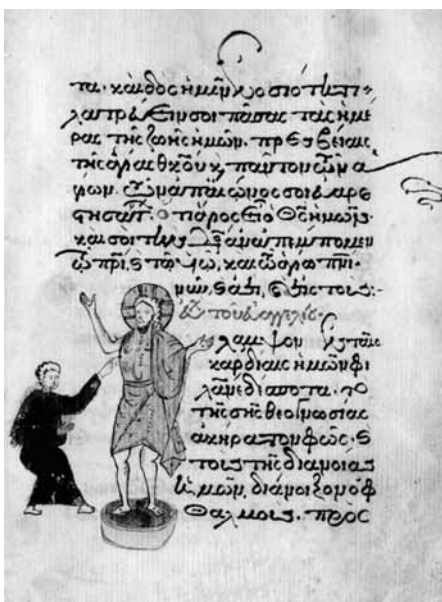 τα. καὶ δὸς ἡμῖν ἐν ὁσιότητι
λατρεύειν σοι πάσας τὰς ἡμέ
ρας τῆς ζωῆς ἡμῶν. πρεσβείαις
τῆς ἁγίας θκου κ πάντων τῶν ἁ
γίων τῶν ἀπ αἰῶνός σοι εὐαρε
στησάντ. ὅτι ἅγιος εἶ ὁ θς ἡμῶν.
καὶ σοὶ τὴν δόξαν ἀναπέμπομεν
τῶ πρι, κ τῶ υἱῶ, καὶ τῶ ἁγίω πνι.
νῦν, κ ἀεὶ, κ εἰς τούς:
εὐχ τοῦ εὐαγγελίου
λαμψον ἐν ταῖς
καρδίαις ἡμῶν φι
λανε δέσποτα. τὸ
τῆς σῆς θεογνωσίας
ἀκήρατον φῶς. κ
τοὺς τῆς διανοίας
ἡμῶν διάνοιξον ὀφ
θαλμούς. πρὸς